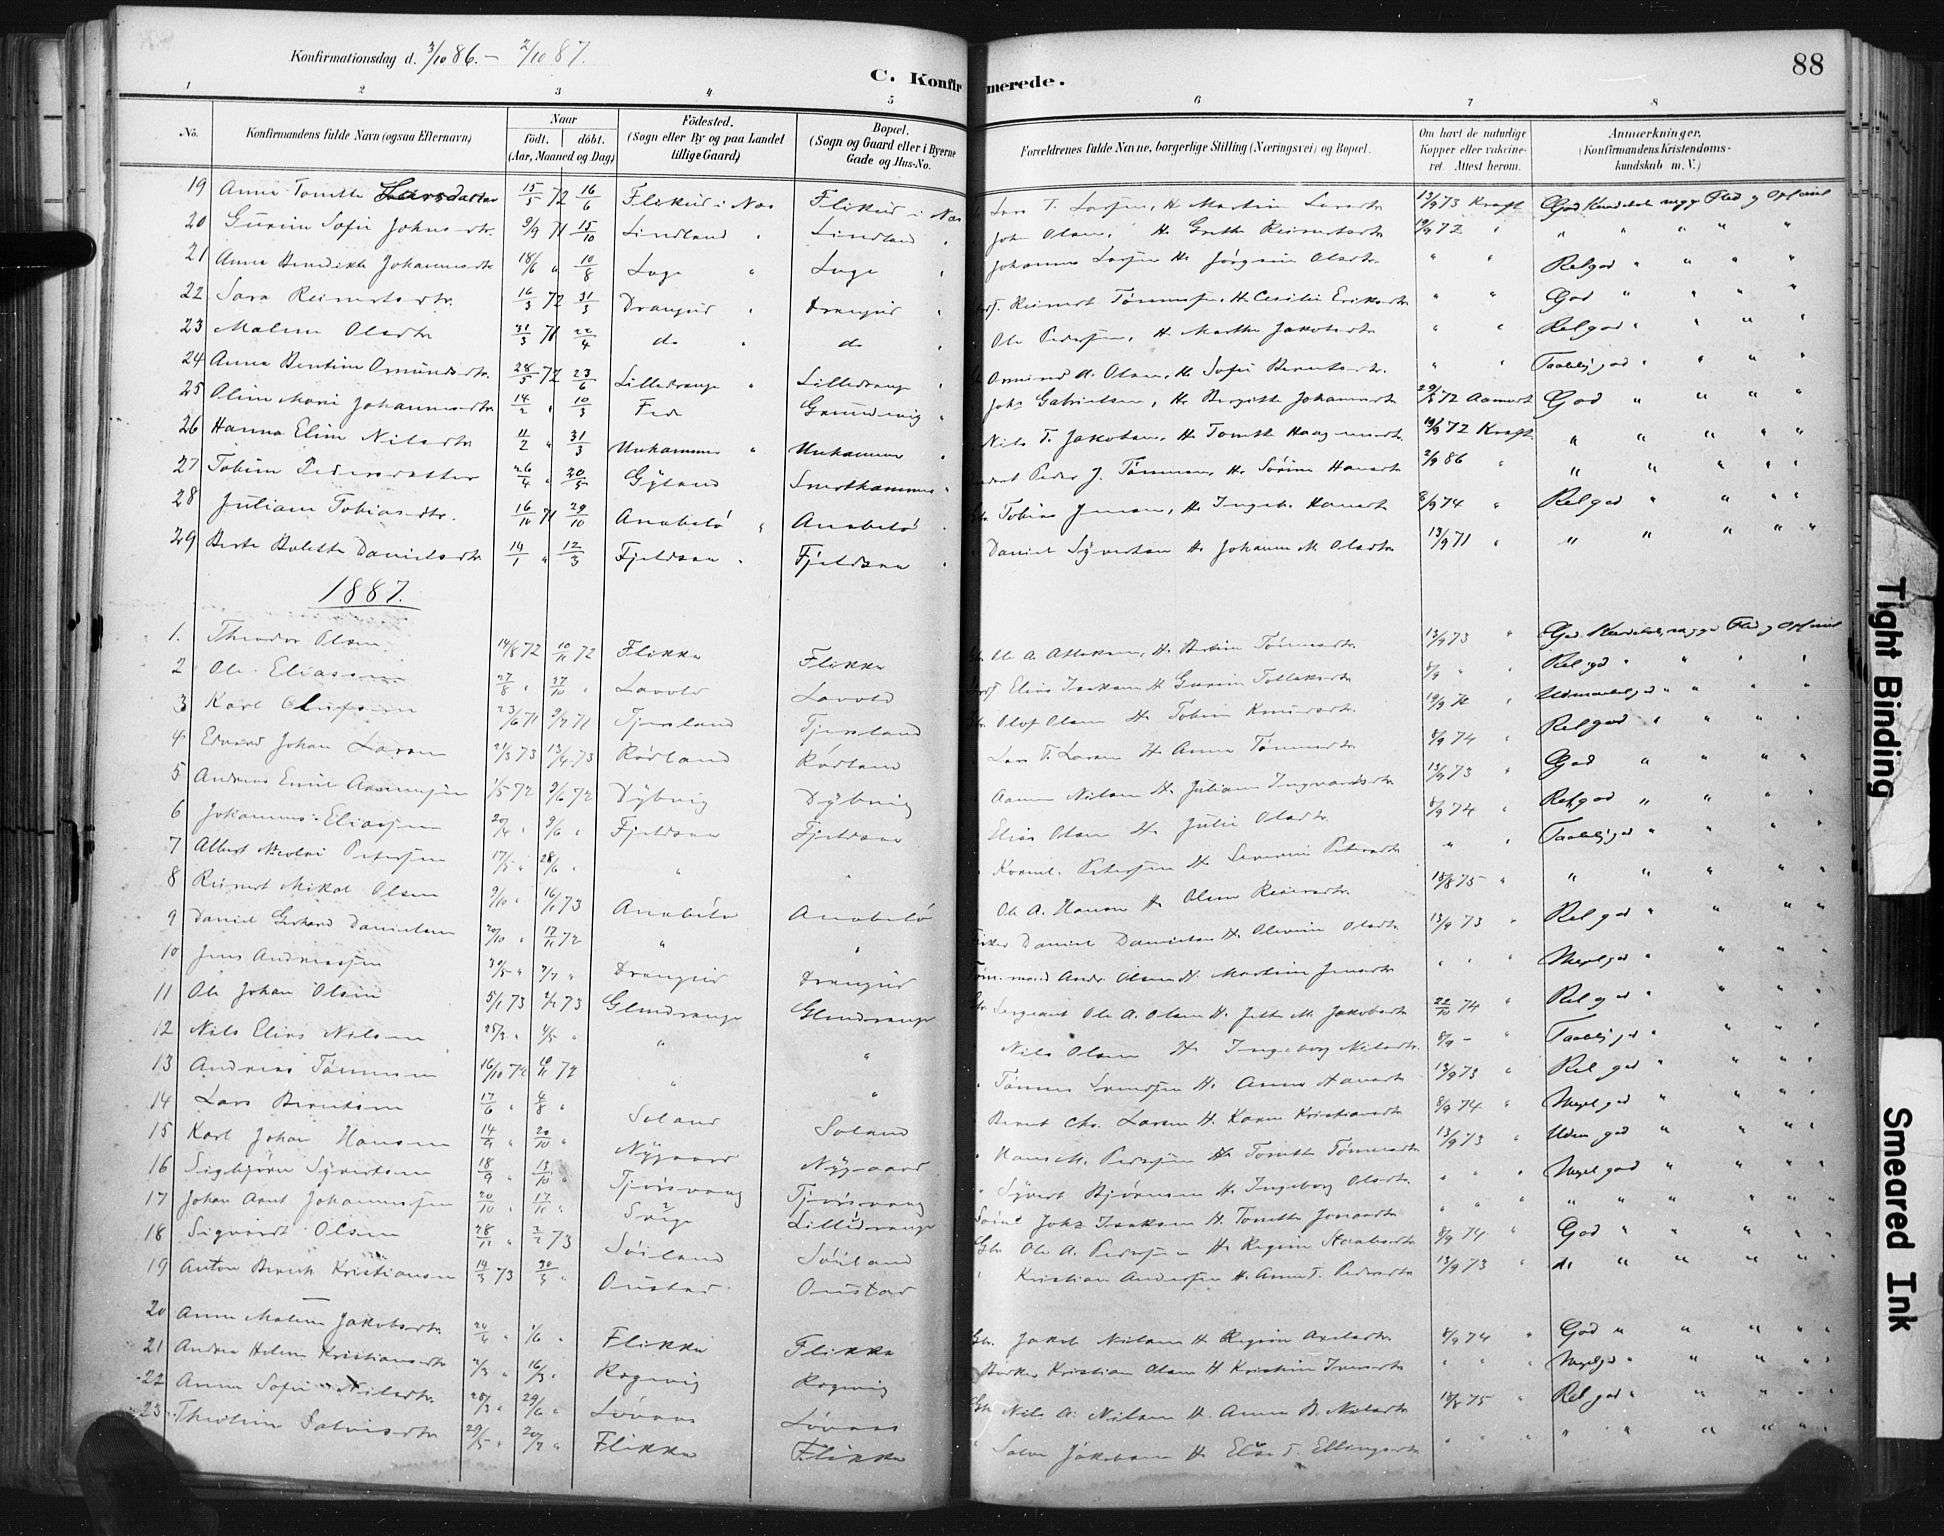 Konfirmationsdag d. 3/10 86. – 2/10 87.
C. Konfirmerede.
88
1 2 3 4 5 6 7 8
No. Konfirmandens fulde Navn (ogsaa Efternavn) Naar født. døbt. (Aar, Maaned og Dag) Fødested. (Sogn eller By og paa Landet tillige Gaard) Bopæl. (Sogn og Gaard eller i Byerne Gade og Hus-No. Forældrenes fulde Navne, borgerlige Stilling (Næringsvei) og Bopæl. Om havt de naturlige Kopper eller vakcineret. Attest herom. Anmærkninger. (Konfirmandens Kristendomskundskab m. V.)
19 Anne Tomette Larsdatter 15/5 72 16/6 Flikeid i Nes Flikeid i Nes Lars T. Larsen, H. Martine Larsdtr 13/9 73 Kraft God
20 Gurine Sofie Johnsdtr. 9/9 71 15/10 Lindland " Lindland " John Olsen, H. Grethe Reinertsdtr 19/9 72 " " " " " "
21 Anne Benedikte Johannesdtr 18/6 " 10/8 Loge " Loge " Johannes Larsen H. Jørgine Olsdtr. " " Rel god " " " "
22 Sara Reinertsdtr. 16/3 72 31/3 Drangeid " Drangeid " Reinert Tønnesen, H. Cecilie Eriksdtr " " God " " " "
23 Malene Olsdtr 31/3 71 22/4 do " do " Ole Pedersen, H. Marthe Jakobsdtr " " Rel god " " " "
24 Anna Bentine Osmundsdtr. 28/5 72 23/6 Lilledrange " Lilledrange " Osmund A. Olsen, H. Sofie Berntsdtr. " " Taalelig god " " " "
25 Oline Marie Johannesdtr 14/2 " 10/3 Feda Grundevig " Johs Gabrielsen, H. Bergitte Johannesdtr 72 Aamodt God " " " "
26 Hanna Eline Nilsdtr 11/2 " 31/3 Unhammer " Unhammer " Nils T. Jakobsen, H. Tomette 19/9 72 Kraft " " " " "
27 Tobine Pedersdatter 26/4 " 20/5 Gyland " Peder J. Tønnesen, H. Sørine Hansdtr 2/9 86 " " " " " "
28 Juliane Tobiasdtr. 16/10 71 29/10 Anabelø " Anabelø " Gbr. Tobias Jensen, H. Ingeb. Hansdtr 8/9 74 " Rel god " " " "
29 Berte Bolette Danielsdtr 14/1 " 12/3 Fjeldsaa " Fjeldsaa " " Daniel Syvertsen H. Johanne M. Olsdtr 13/9 71 " " " " " "
1887.
1. Theodor Olsen 14/8 72 10/11 72 Flikka Flikka Gbr. Ole A. Atlaksen, H. Bertine Tønnesdtr 13/9 73 " God
2 Ole Eliassen 27/8 " 27/10 " Lavold Lavold Elias Isaksen H. Gurine Tollaksdtr 8/9 " " Rel god " " " "
3 Karl Olufsen 23/6 71 9/7 71 Tjersland Tjersland Gbr. Olof Olsen H. Tobine Knudsdtr. 19/9 " " " " "
4 Edvard Johan Larsen 21/3 73 13/4 73 Rødland Rødland " Lars T. Larsen H. Anna Tønnesdtr 8/9 74 " Rel god " " " "
5 Andreas Emil Aanensen 1/5 72 9/6 72 Dybvig Dybvig " Aanen Nilsen H. Juliane Ingvardsdtr 13/9 73 " God " " " "
6 Johannes Eliassen 20/4 " 9/6 " Fjeldsaa Fjeldsaa " Elias Olsen H. Julie Olsdtr. 8/9 74 " Rel. god " " " "
7 Albert Nicolai Petersen 17/5 " 28/6 " " " Kornel. Petersen H. Severine Petersdtr " " Taalelig god " " " "
8 Reinert Mikal Olsen 9/10 " 16/1 73 Anabelø Anabelø Ole A. Hansen H. Olene Reinersdtr. 18/8 75 " " " " " "
9 Daniel Gerhard Danielsen 20/10 " 17/11 72 " " Fisker Daniel Danielsen H. Olevine Olsdtr 13/9 73 " Rel god " " " "
10 Jens Andreassen 30/5 " 7/7 " Drangeid Drangeid Tømmermand Andr. Olsen H. Martine Jensdtr " " " Meget god " " " "
11 Ole Johan Olsen 5/1 73 2/2 73 Glendrange Glendrange Gbr. Sergeant Ole A. Olsen H. Jette M. Jakobsdtr 22/10 74 " Rel god " " " "
12 Nils Elias Nilsen 25/3 " 4/5 " " " " Nils Olsen H. Ingeborg Nilsdtr. 8/9 – " Taalelig god " " " "
13 Andreas Tønnesen 16/10 72 10/11 72 " " " Tønnes Svendsen H. Anne Hansdtr 13/9 73 " Rel god " " " "
14 Lars Berntsen 17/6 " 4/8 " Soland Soland Bernt Chr. Larsen H. Karen Kristiansdtr 8/9 74 " Meget god " " " "
15 Karl Johan Hansen 14/9 " 20/10 " Nygaard Nygaard " Hans M. Pedersen H. Tomette Tønnesdtr 13/9 73 " Uden god " " " "
16 Sigbjørn Syvertsen 18/9 " 13/10 " Tjørsvaag Tjørsvaag " Syvert Bjørnsen H. Ingeborg Olsdtr. " " " Meget god " " " "
17 Johan Arnt Johannessen 20/10 " 17/11 " Svege Lilledrange Johs Isaksen H. Tomette Jonasdtr " " " " " " " "
18 Sigvardt Olsen 28/11 " 2/2 73 Søiland Søiland Gbr. Ole A. Pedersen H. Regine 8/9 74 " God " " " "
19 Anton Berent Kristiansen 14/3 73 30/3 " Oustad Oustad " Kristian Andersen H. Anne T. Pedersdtr 13/9 73 " do " " " "
20 Anne Malene Jakobsdtr. 20/4 " 1/6 " Flikka Flikka Gbr. Jakob Nilsen H. Regine Axelsdtr. 8/9 74 " God " " " "
21 Andrea Helene Kristiansdtr 2/3 " 16/3 " Rogevig Rogevig Kristian Olsen H Kristine Iversdtr " " " Meget god " " " "
22 Anne Sofie Nilsdtr. 28/3 " 29/6 " Løvaas Løvaas Gbr. Nils A. Nilsen H. Anne B. Nilsdtr 18/8 75 " Rel god " " " "
23 Theoline Salvesdtr 29/5 " 20/7 " Flikka Flikka " Salve Jakobsen H. Else T. Ellingsdtr " " " " " " " "
Tight Binding
Smeared Ink